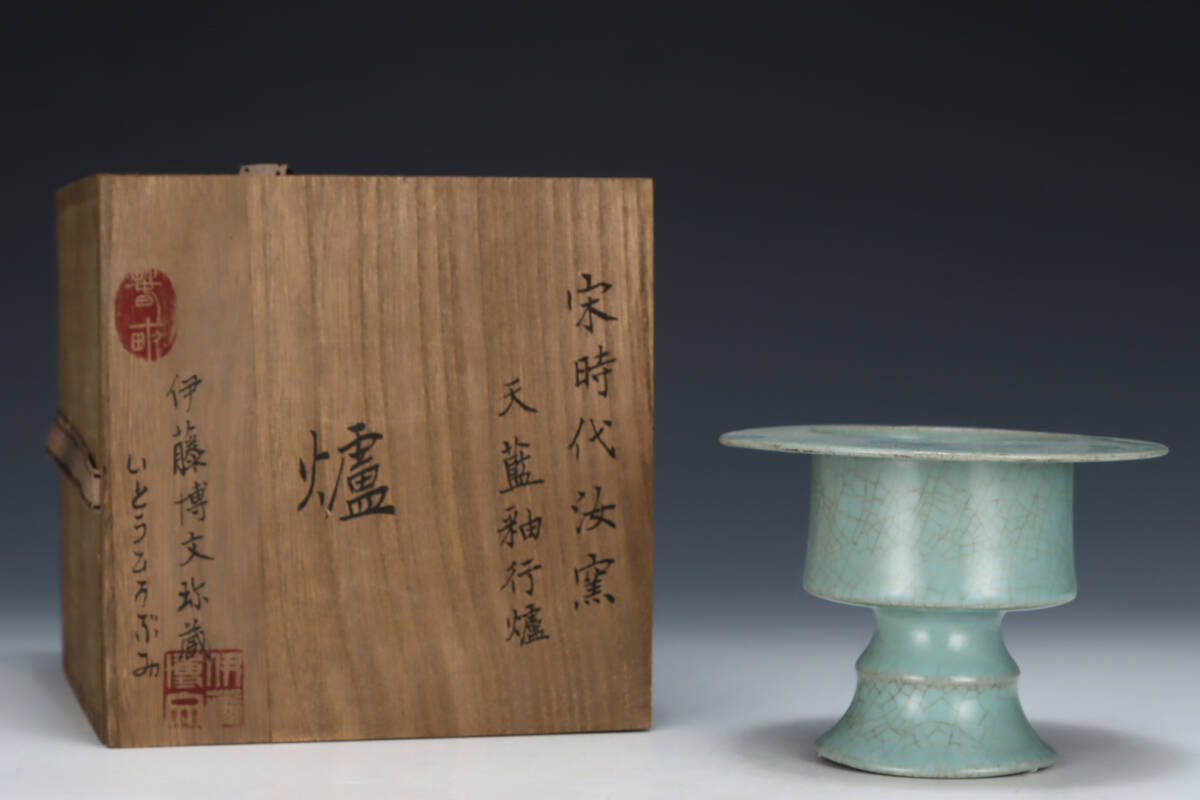 宋時代汝窯
天藍釉行爐
爐
伊藤博文珍藏
いとうひろぶみ
春畝